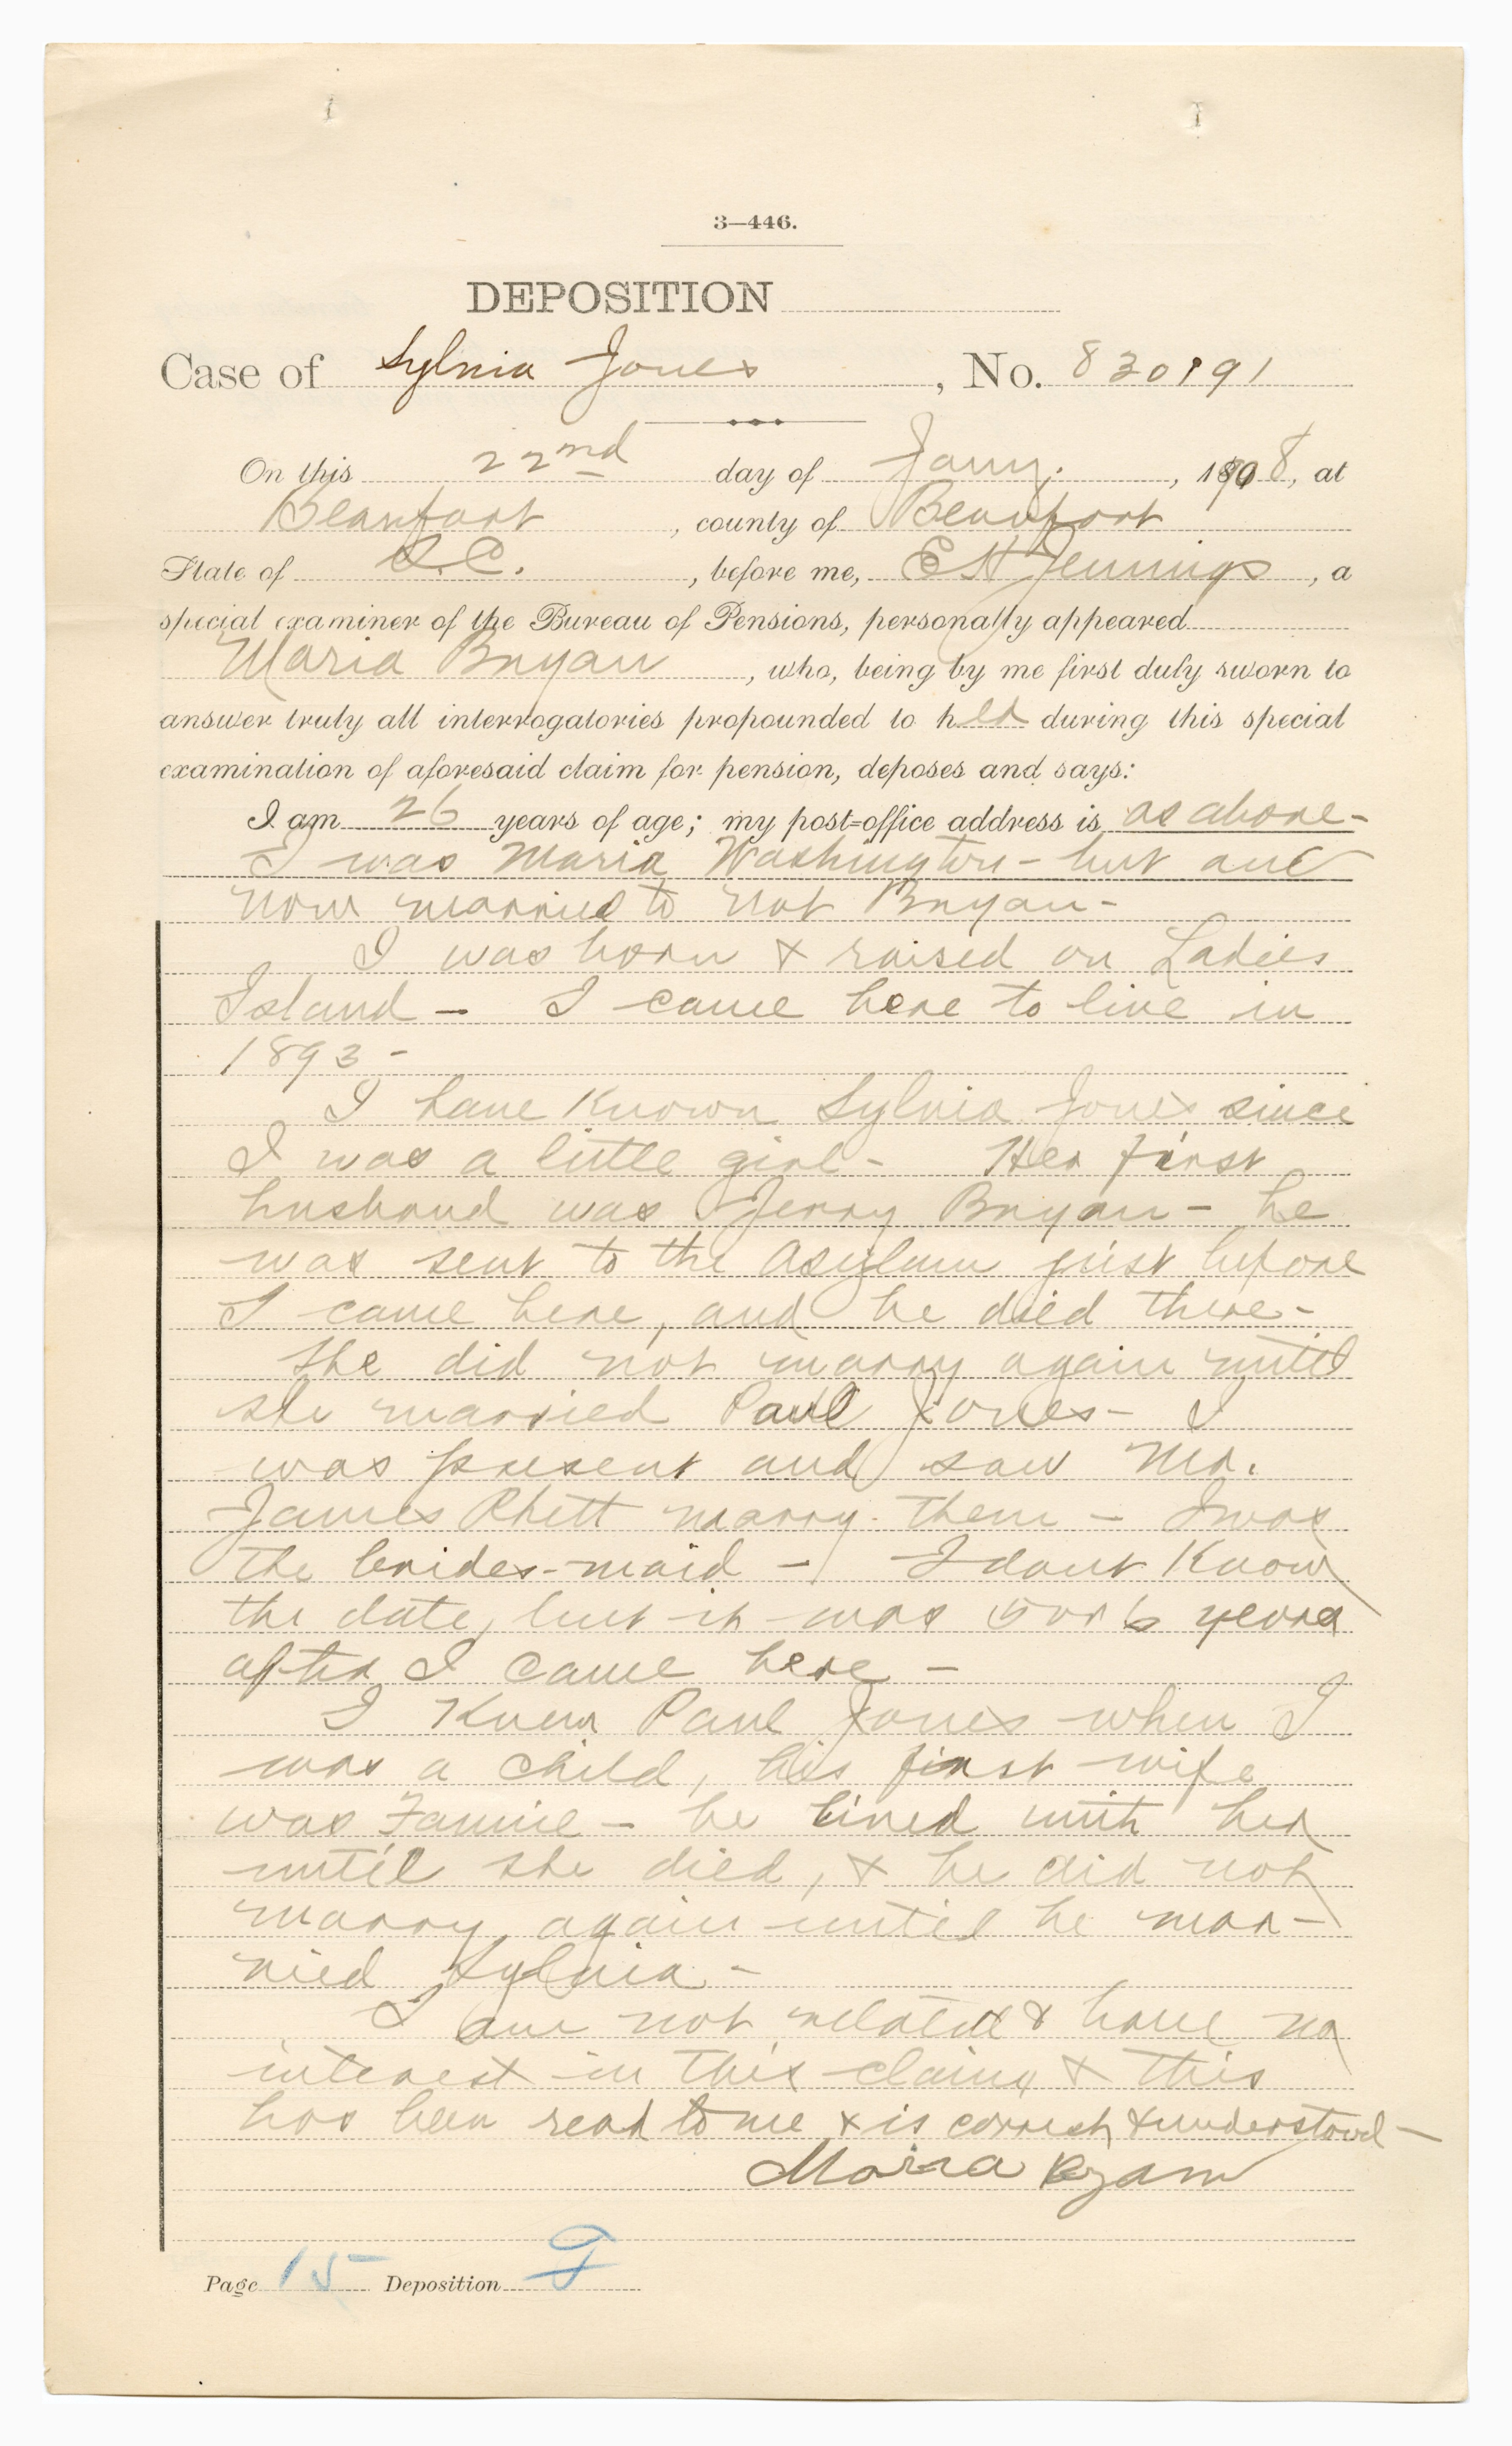 3—446.
DEPOSITION
Case of Sylvia Jones, No. 830191
On this 22nd day of Jany., 1908, at
Beaufort, county of Beaufort
State of S.C., before me, E H Jennings, a
special examiner of the Bureau of Pensions, personally appeared
Maria Bryan, who, being by me first duly sworn to
answer truly all interrogatories propounded to her during this special
examination of aforesaid claim for pension, deposes and says:
I am 26 years of age; my post-office address is as above-
I was Maria Washington - but am
now married to Nat Bryan-
I was born & raised on Ladies
Island - I came here to live in
1893 -
I have known Sylvia Jones since
I was a little girl - Her first
husband was Jerry Bryan - he
was sent to the Asylum just before
I came here, and he died there -
She did not marry again until
she married Paul Jones - I
was present and saw Mr.
James Rhett marry them - I was
the brides-maid - I dont know
the date, but it was 5 or 6 years
after I came here -
I knew Paul Jones when I
was a child, his first wife
was Fannie - he lived with her
until she died, & he did not
marry again until he mar-
ried Sylvia -
I am not related & have no
interest in this claim & this
has been read to me & is correct & understood -
Maria Byan
Page 15 Deposition F